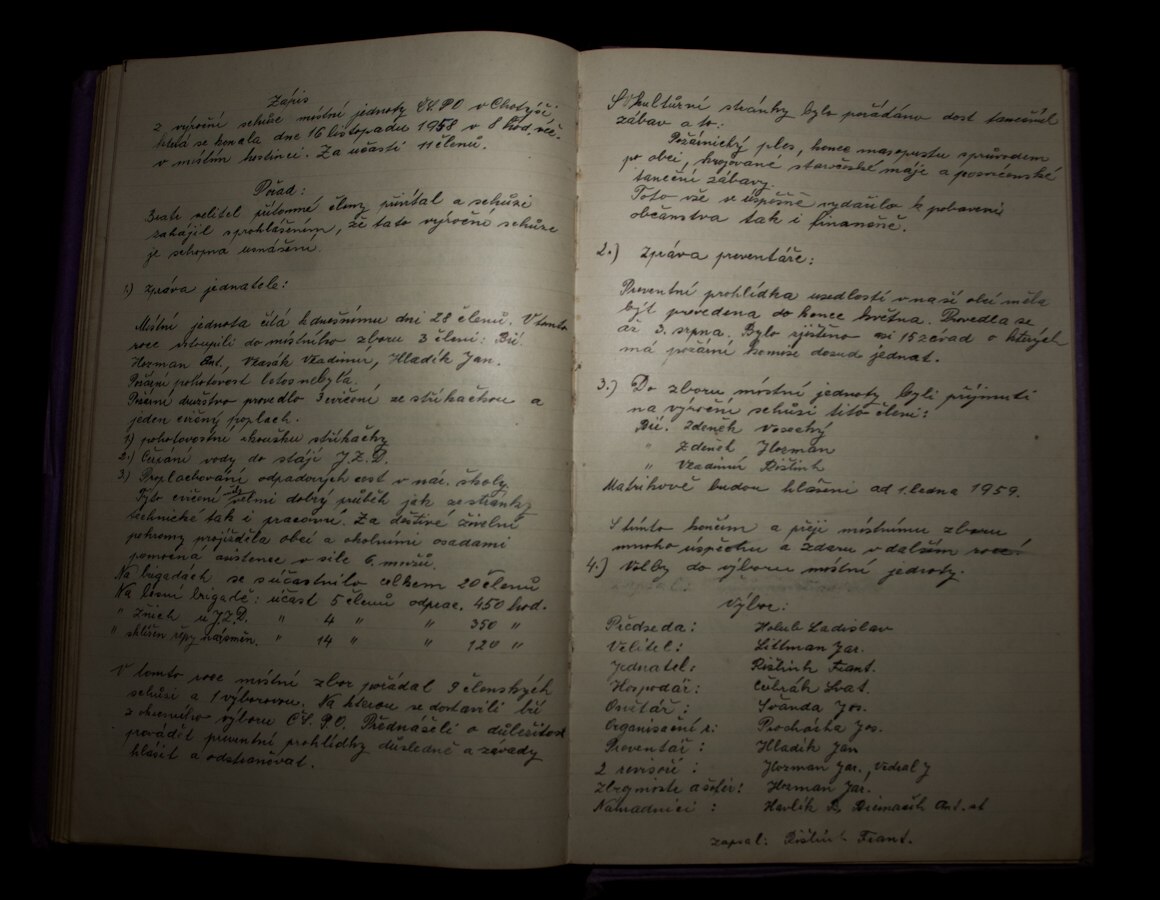 Zápis
z výroční schůze místní jednoty ČS.PO v Chotýši
která se konala dne 16 listopadu 1958 v 8 hod. več.
v místním hostinci. Za učasti 11 členů.
Pořad:
Bratr velitel přítomné členy přivítal a schůzi
zahájil s prohlášením, že tato výroční schůze
je schopna usnášení.
1.) Zpráva jednatele:
Místní jednota čítá k dnešnímu dni 28 členů. V tomto
roce vstoupili do místního zboru 3 členi: Bři.
Hozman Ant., Vlasák Vladimír, Hladík Jan.
Požární pohotovost letos nebyla.
Požární družstvo provedlo 3 cvičení se stříkačkou a
jeden cvičný poplach.
1) pohotovostní skoušku stříkačky
2.) Čerpání vody do stájí J.Z.D.
3) Proplachování odpadových cest v nár. školy.
Tyto cvičení měly velmi dobrý průběh jak ze stránky
technické tak i pracovní. Za deštivé živelní
pohromy projížděla obcí a okolními osadami
pomocná asistence v síle 6. mužů.
Na brigadách se súčastnilo celkem 20 členů
Na lesní brigadě: učast 5 členů odprac. 450 hod.
" žních u J.Z.D. " 4 " " 350 "
" sklizen řepy " 14 " " 120 "
V tomto roce místní zbor pořádal 9 členských
schůzí a 1 výborovou. Na kterou se dostavili bři
z okresního výboru ČS.P.O. Přednášeli o důležitosti
provádět preventní prohlídky důsledně a zavady
hlásit a odstraňovat.
S kulturní stránky bylo pořádáno dost tanečních
zábav a to:
Požárnický ples, konec masopustu s průvodem
po obci, krojované staročeské máje a posvícenské
taneční zábavy.
Toto vše se úspěšně vydařilo k pobavení
občanstva tak i finančně.
2.) Zpráva preventáře:
Preventní prohlídka usedlostí v naší obci měla
být provedena do konce května. Provedla se
až 3. srpna. Bylo zjištěno asi 15 závad o kterých
má požární komise dosud jednat.
3.) Do zboru místní jednoty byli přijmuti
na výroční schůzi tito členi:
Bři. Zdeněk Vosecký
" Zdeněk Hozman
" Vladimír Říštich
Matrikově budou hlášeni od 1. ledna 1959.
S tímto končím a přeji místnímu zboru
mnoho úspěchu a zdaru v dalším roce!
4.) Volby do výboru místní jednoty.
Výbor:
Předseda: Holub Ladislav
Velitel: Littman Jar.
Jednatel: Říštich Frant.
Hospodář: Cibrák Svat.
Osvětář: Švanda Jos.
Organisační r: Procházka Jos.
Preventář: Hladík Jan
2 revisoři: Hozman Jar., Vedral J
Hozman Jar.
Náhradníci: Havlík Ant. st
zapsal: Říštich Frant.